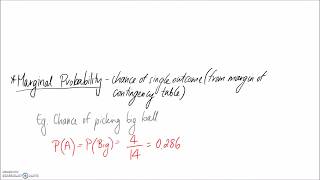 *Marginal Probability - chance of single outcome (from margin of
contingency table)
Eg. Chance of picking big ball
P(A) = P(Big) = 4/14 = 0.286